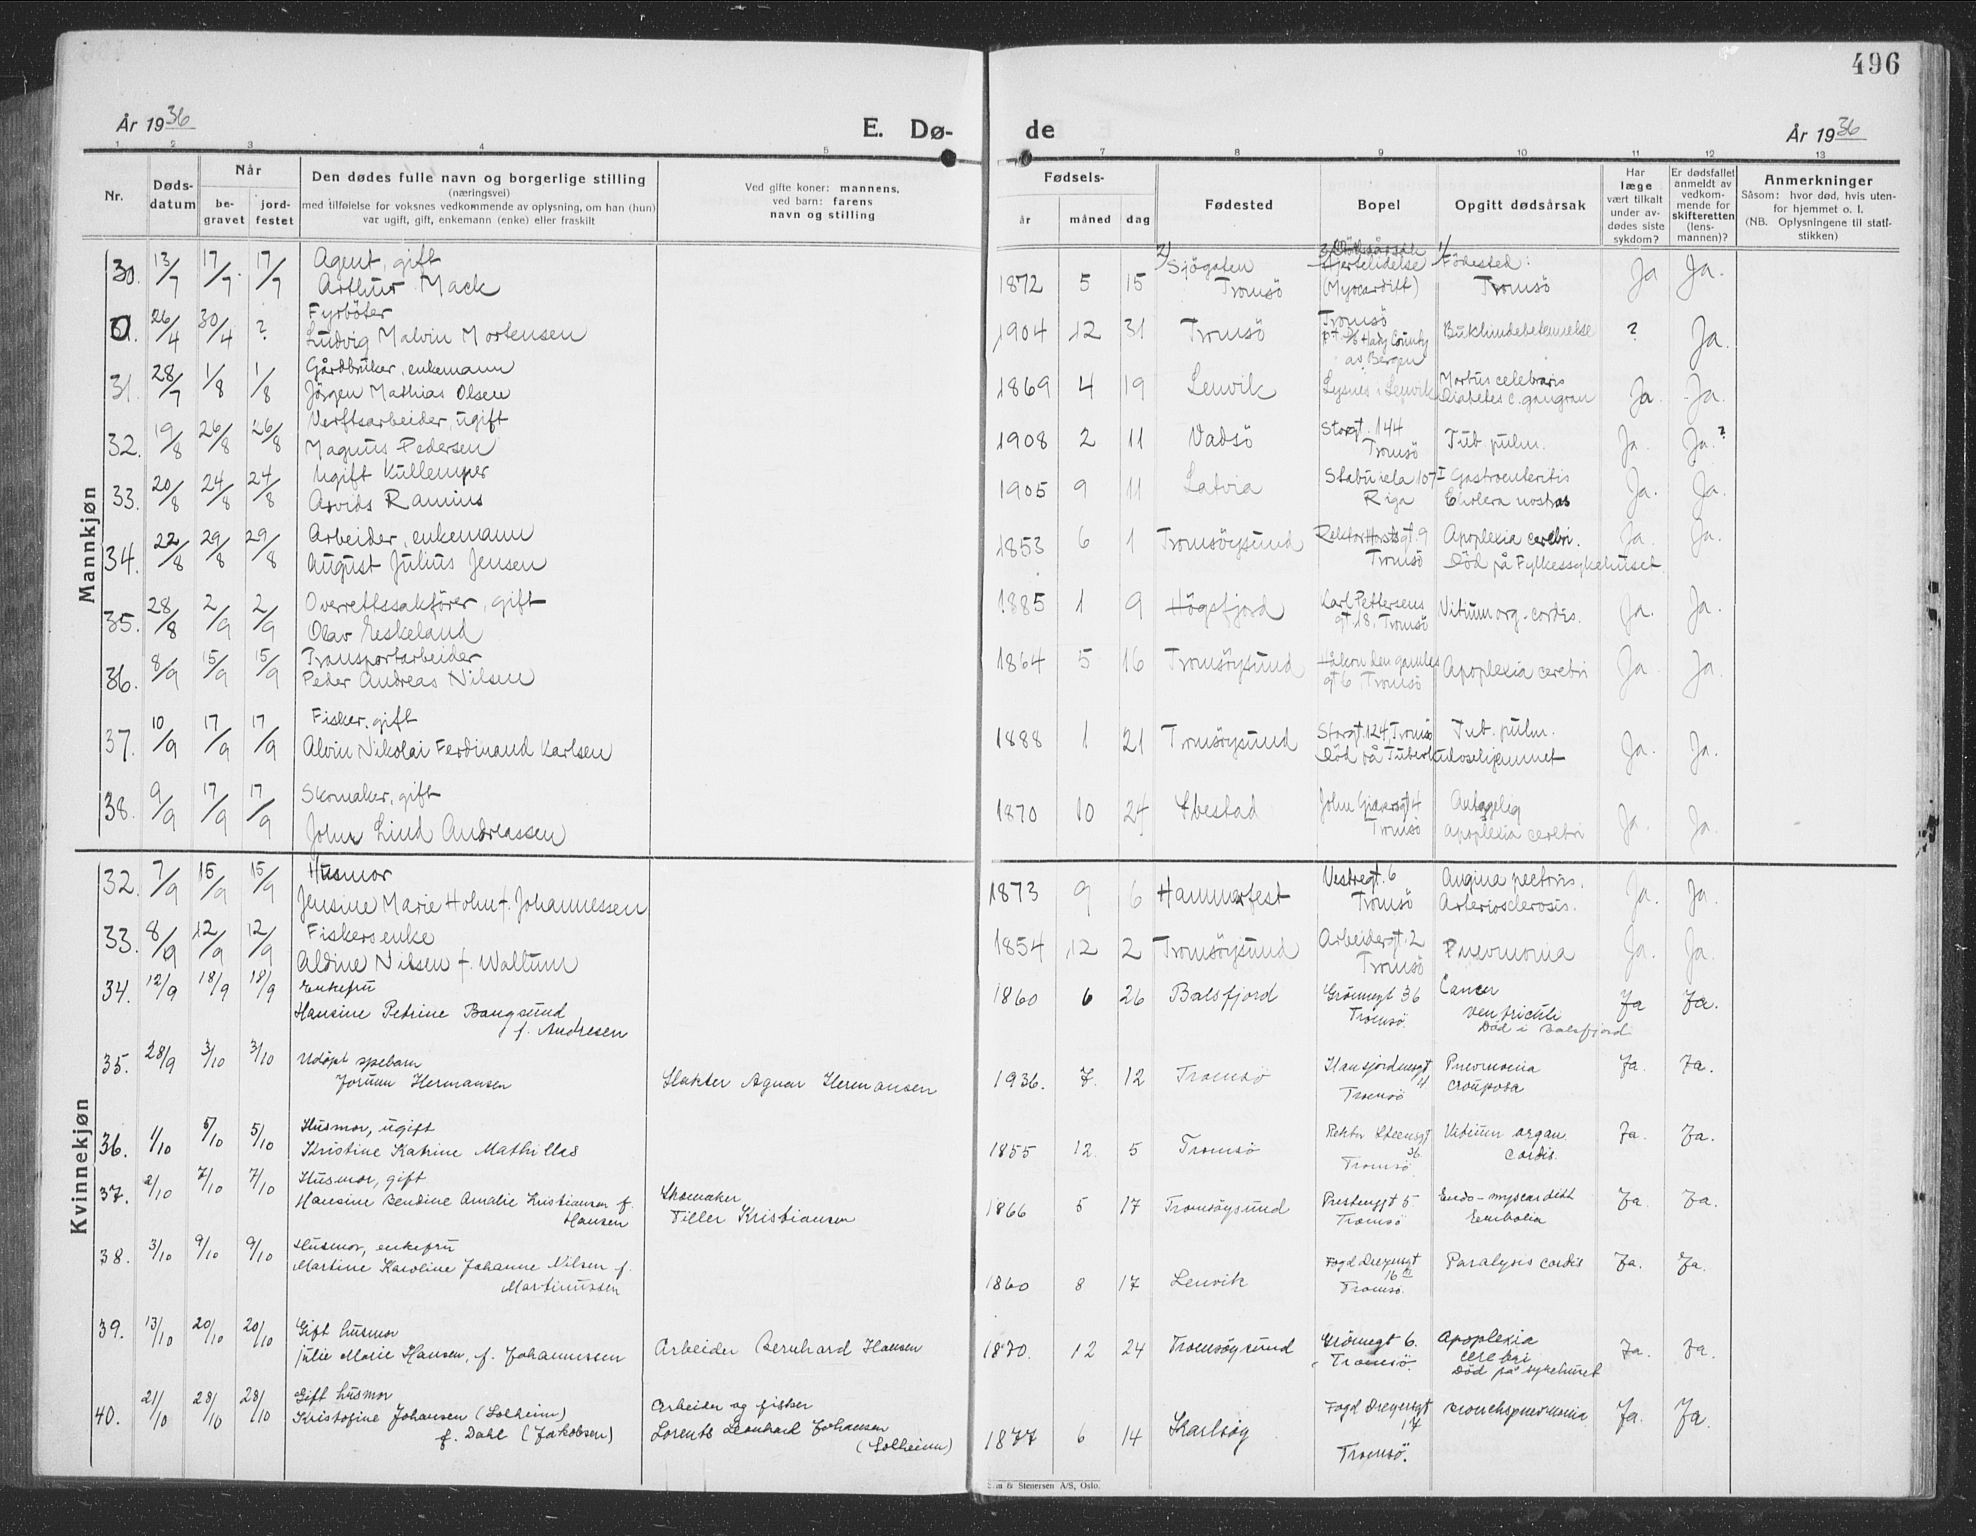 496
År 1936
E. Dø-
de
År 1936
1 2 3 4 5
7 8 9 10 11 12 13
Nr.
Døds-
datum
Når
be-
gravet
jord-
festet
Den dødes fulle navn og borgerlige stilling
(næringsvei)
med tilføielse for voksnes vedkommende av oplysning, om han (hun)
var ugift, gift, enkemann (enke) eller fraskilt
Ved gifte koner: mannens,
ved barn: farens
navn og stilling
Fødsels-
år måned dag
Fødested
Bopel
Opgitt dødsårsak
Har
læge
vært tilkalt
under av-
dødes siste
sykdom?
Er dødsfallet
anmeldt av
vedkom-
mende for
skifteretten
(lens-
mannen)?
Anmerkninger
Såsom: hvor død, hvis uten-
for hjemmet o. l.
(NB. Oplysningene til stati-
stikken)
Mannkjøn
30. 13/7 17/7 17/7 Agent, gift
Arthur Mack
1872 5 15 2/ Sjögaten
Tromsö
3/ Dödsårsak
Hjertelidelse
(Myocarditt)
1/ Födested:
Tromsö
Ja Ja.
0. 26/4 30/4 ? Fyrböter
Ludvig Malvin Mortensen
1904 12 31 Tromsö
Tromsö
p.t. D/S Hady County
av Bergen
Bukhindebetennelse ? Ja.
31. 28/7 1/8 1/8 Gårdbruker, enkemann
Jörgen Mathias Olsen
1869 4 19 Lenvik Lysnes i Lenvik
Morbus celebraris
Diabetes c. gangran
Ja. Ja.
32. 19/8 26/8 26/8 Verftsarbeider, ugift
Magnus Pedersen
1908 2 11 Vadsö Storgt. 144
Tromsö
Tub. pulm. Ja. Ja.?
33. 20/8 24/8 24/8 Ugift Kullemper
Arvids Ramins
1905 9 11 Latvia Stabu iela 107 I
Riga
Gastroenteritis
Cholera nostras
Ja. Ja.
34. 22/8 29/8 29/8 Arbeider, enkemann
August Julius Jensen
1853 6 1 Tromsöysund Rektor Horstsgt. 9
Tromsö
Apoplexia cerebri.
Död på Fylkessykehuset.
Ja. Ja.
35. 28/8 2/9 2/9 Overrettssakförer, gift
Olav Eskeland
1885 1 9 Högsfjord Karl Pettersens
gt. 18, Tromsö
Vitium org. cordis. Ja. Ja.
36. 8/9 15/9 15/9 Transportarbeider
Peder Andreas Nilsen
1864 5 16 Tromsöysund Håkon den gamles
gt 6, Tromsö
Apoplexia cerebri Ja. Ja.
37. 10/9 17/9 17/9 Fisker, gift
Alvin Nikolai Ferdinand Karlsen
1888 1 21 Tromsöysund Storgt. 124, Tromsö
Tub. pulm.
Död på Tuberkuloseheimmet
Ja. Ja.
38. 9/9 17/9 17/9 Skomaker, gift
John Lind Andreassen
1870 10 24 Ibestad John Giæversgt 4
Tromsö
Antagelig
apoplexia cerebri
Ja. Ja.
Kvinnekjøn
32. 7/9 15/9 15/9 Husmor
Jensine Marie Holm f. Johannessen
1873 9 6 Hammerfest Vestregt. 6
Tromsö
Angina pectoris.
Arteriosclerosis.
Ja. Ja.
33. 8/9 12/9 12/9 Fiskers enke
Aldine Nilsen f. Waltum
1854 12 2 Tromsöysund Arbeidergt. 2
Tromsö
Pneumonia Ja. Ja.
34. 12/9 18/9 18/9 Enkefru
Hansine Petrine Bangsund
f. Andresen
1860 6 26 Balsfjord Grönnegt 36
Tromsö.
Cancer
ventrichli
Död i Balsfjord
Ja Ja.
35. 28/9 3/10 3/10 Udöpt spebarn
Jorunn Hermansen
Slakter Agnar Hermansen
1936. 7. 12 Tromsö Hansjordnesgt
4
Tromsö
Pneumonia
crouposa
Ja. Ja.
36. 1/10 5/10 5/10 Husmor, ugift
Kristine Katrine Mathillas
1855 12. 5 Tromsö Rektor Steensgt
36.
Tromsö
Vitium organ.
Cordis.
Ja. Ja.
37. 2/10 7/10 7/10 Husmor, gift
Hansine Bendine Amalie Kristiansen f.
Hansen
Skomaker
Tiller Kristiansen
1866 5 17 Tromsöysund Prestenggt 5.
Tromsö
Endo-myocarditt
Embolia
Ja. Ja.
38. 3/10 9/10 9/10 Husmor, enkefru
Martine Karoline Johanne Nilsen f.
Martinussen
1860 8 17 Lenvik Fogd Dreyersgt
16 III
Tromsö.
Paralysis cordis Ja. Ja.
39. 13/10 20/10 20/10 Gift husmor
Julie Marie Hansen, f. Johannessen
Arbeider Bernhard Hansen
1870. 12 24 Tromsöysund Grönnegt 6.
Tromsö.
Apoplexia
cerebri
Död på sykehuset
Ja. Ja.
40. 21/10 28/10 28/10 Gift husmor
Kristofine Johansen (Solheim)
f. Dahl (Jakobsen)
Arbeider og fisker
Lorents Leonhard Johansen
(Solheim)
1877 6 14 Karlsöy Fogd Dreyersgt
17
Tromsö.
Bronchopneumonia Ja. Ja.
Sem & Stenersen A/S, Oslo.